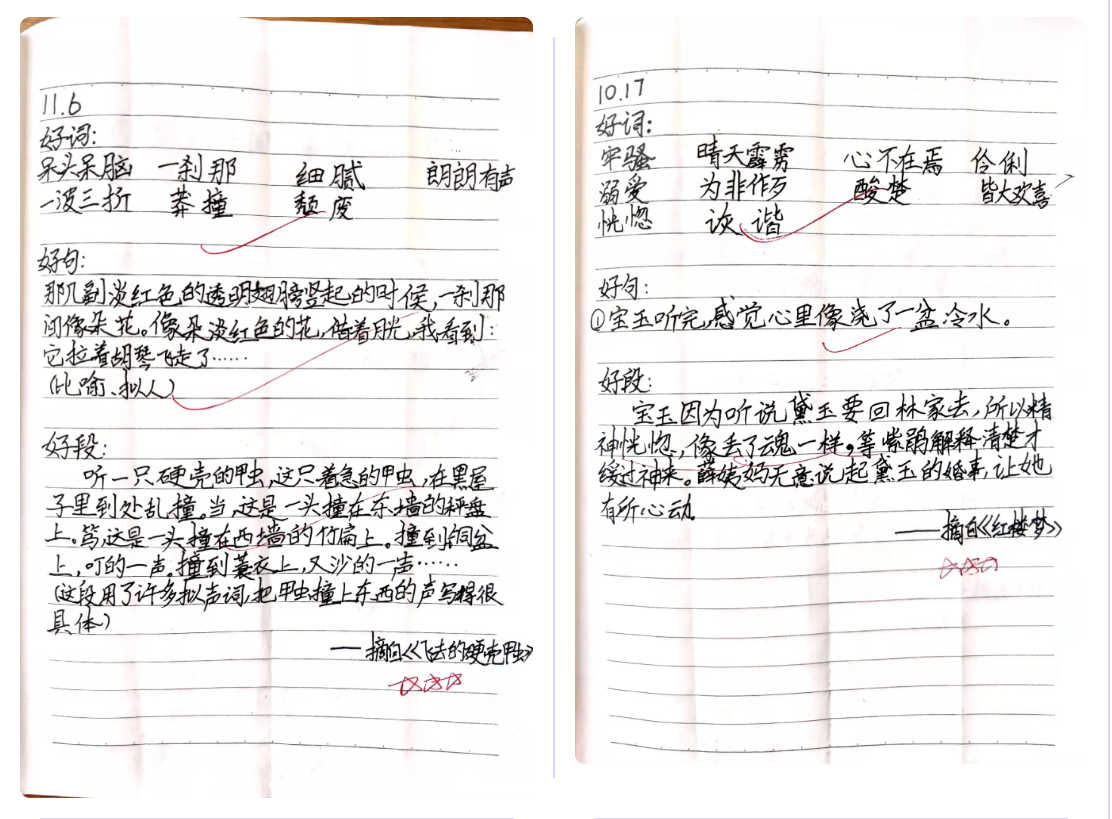 11.6
好词:
呆头呆脑 一刹那 细腻 朗朗有声
一波三折 莽撞 颓废
好句:
那几副淡红色的透明翅膀竖起的时候,一刹那
间像朵花。像朵淡红色的花,借着月光,我看到:
它拉着胡琴飞走了……
(比喻、拟人)
好段:
听一只硬壳的甲虫,这只着急的甲虫,在黑屋
子里到处乱撞。当,这是一头撞在东墙的秤盘
上。笃,这是一头撞在西墙的竹扁上。撞到铜盆
上,叮的一声。撞到蓑衣上,又沙的一声……
(这段用了许多拟声词,把甲虫撞上东西的声写得很
具体)
——摘自《飞去的硬壳甲虫》
10.17
好词:
牢骚 晴天霹雳 心不在焉 伶俐
溺爱 为非作歹 酸楚 皆大欢喜
恍惚 诙谐
好句:
①宝玉听完,感觉心里像浇了一盆冷水。
好段:
宝玉因为听说黛玉要回林家去,所以精
神恍惚,像丢了魂一样。等紫鹃解释清楚才
缓过神来。薛姨妈无意说起黛玉的婚事,让她
有所心动
——摘自《红楼梦》